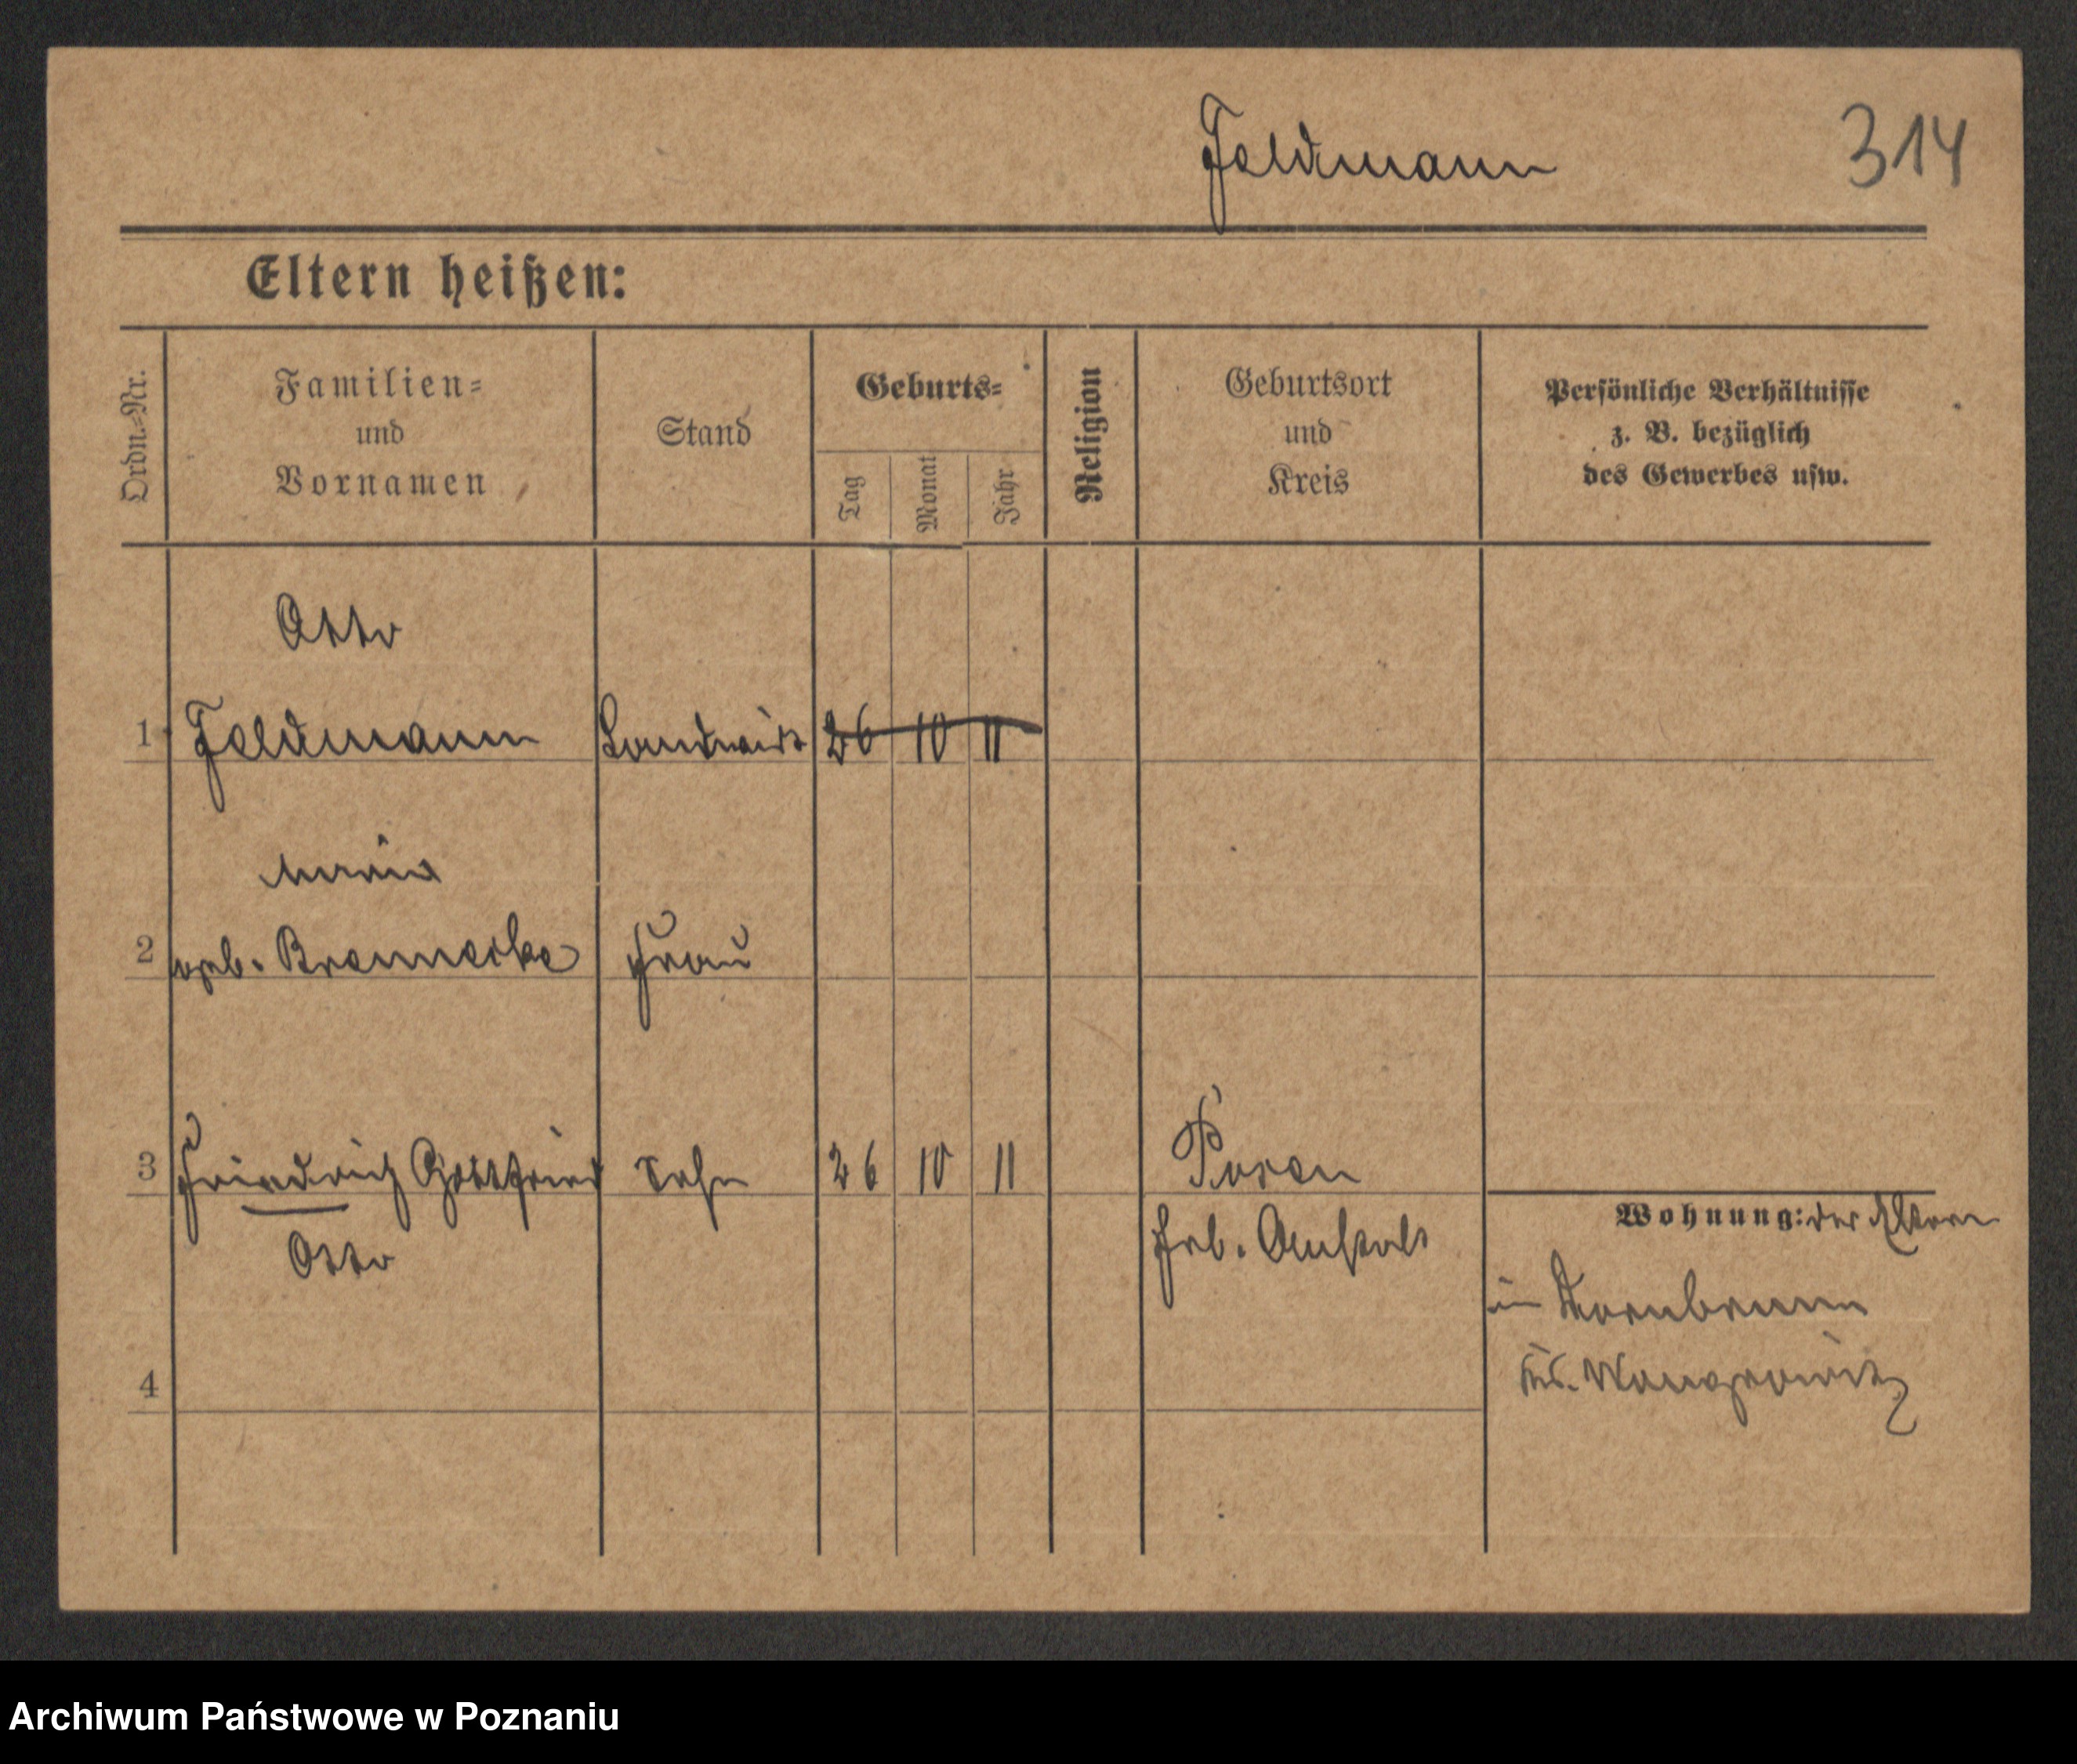 Feldmann
314
Eltern heißen:
Ordn.-Nr.
Familien-
und
Vornamen
Stand
Geburts-
Tag
Monat
Jahr
Religion
Geburtsort
und
Kreis
Persönliche Verhältnisse
z. B. bezüglich
des Gewerbes usw.
Otto
1 Feldmann Landwirt 26 10 11
Maria
2 geb. Brennecke Frau
3 Friedrich Gottfried Sohn 26 10 11 Posen
Otto
Geb. Anstalt
Wohnung: der Eltern
in Dornbrunn
Krs. Wongrowitz
4
Archiwum Państwowe w Poznaniu